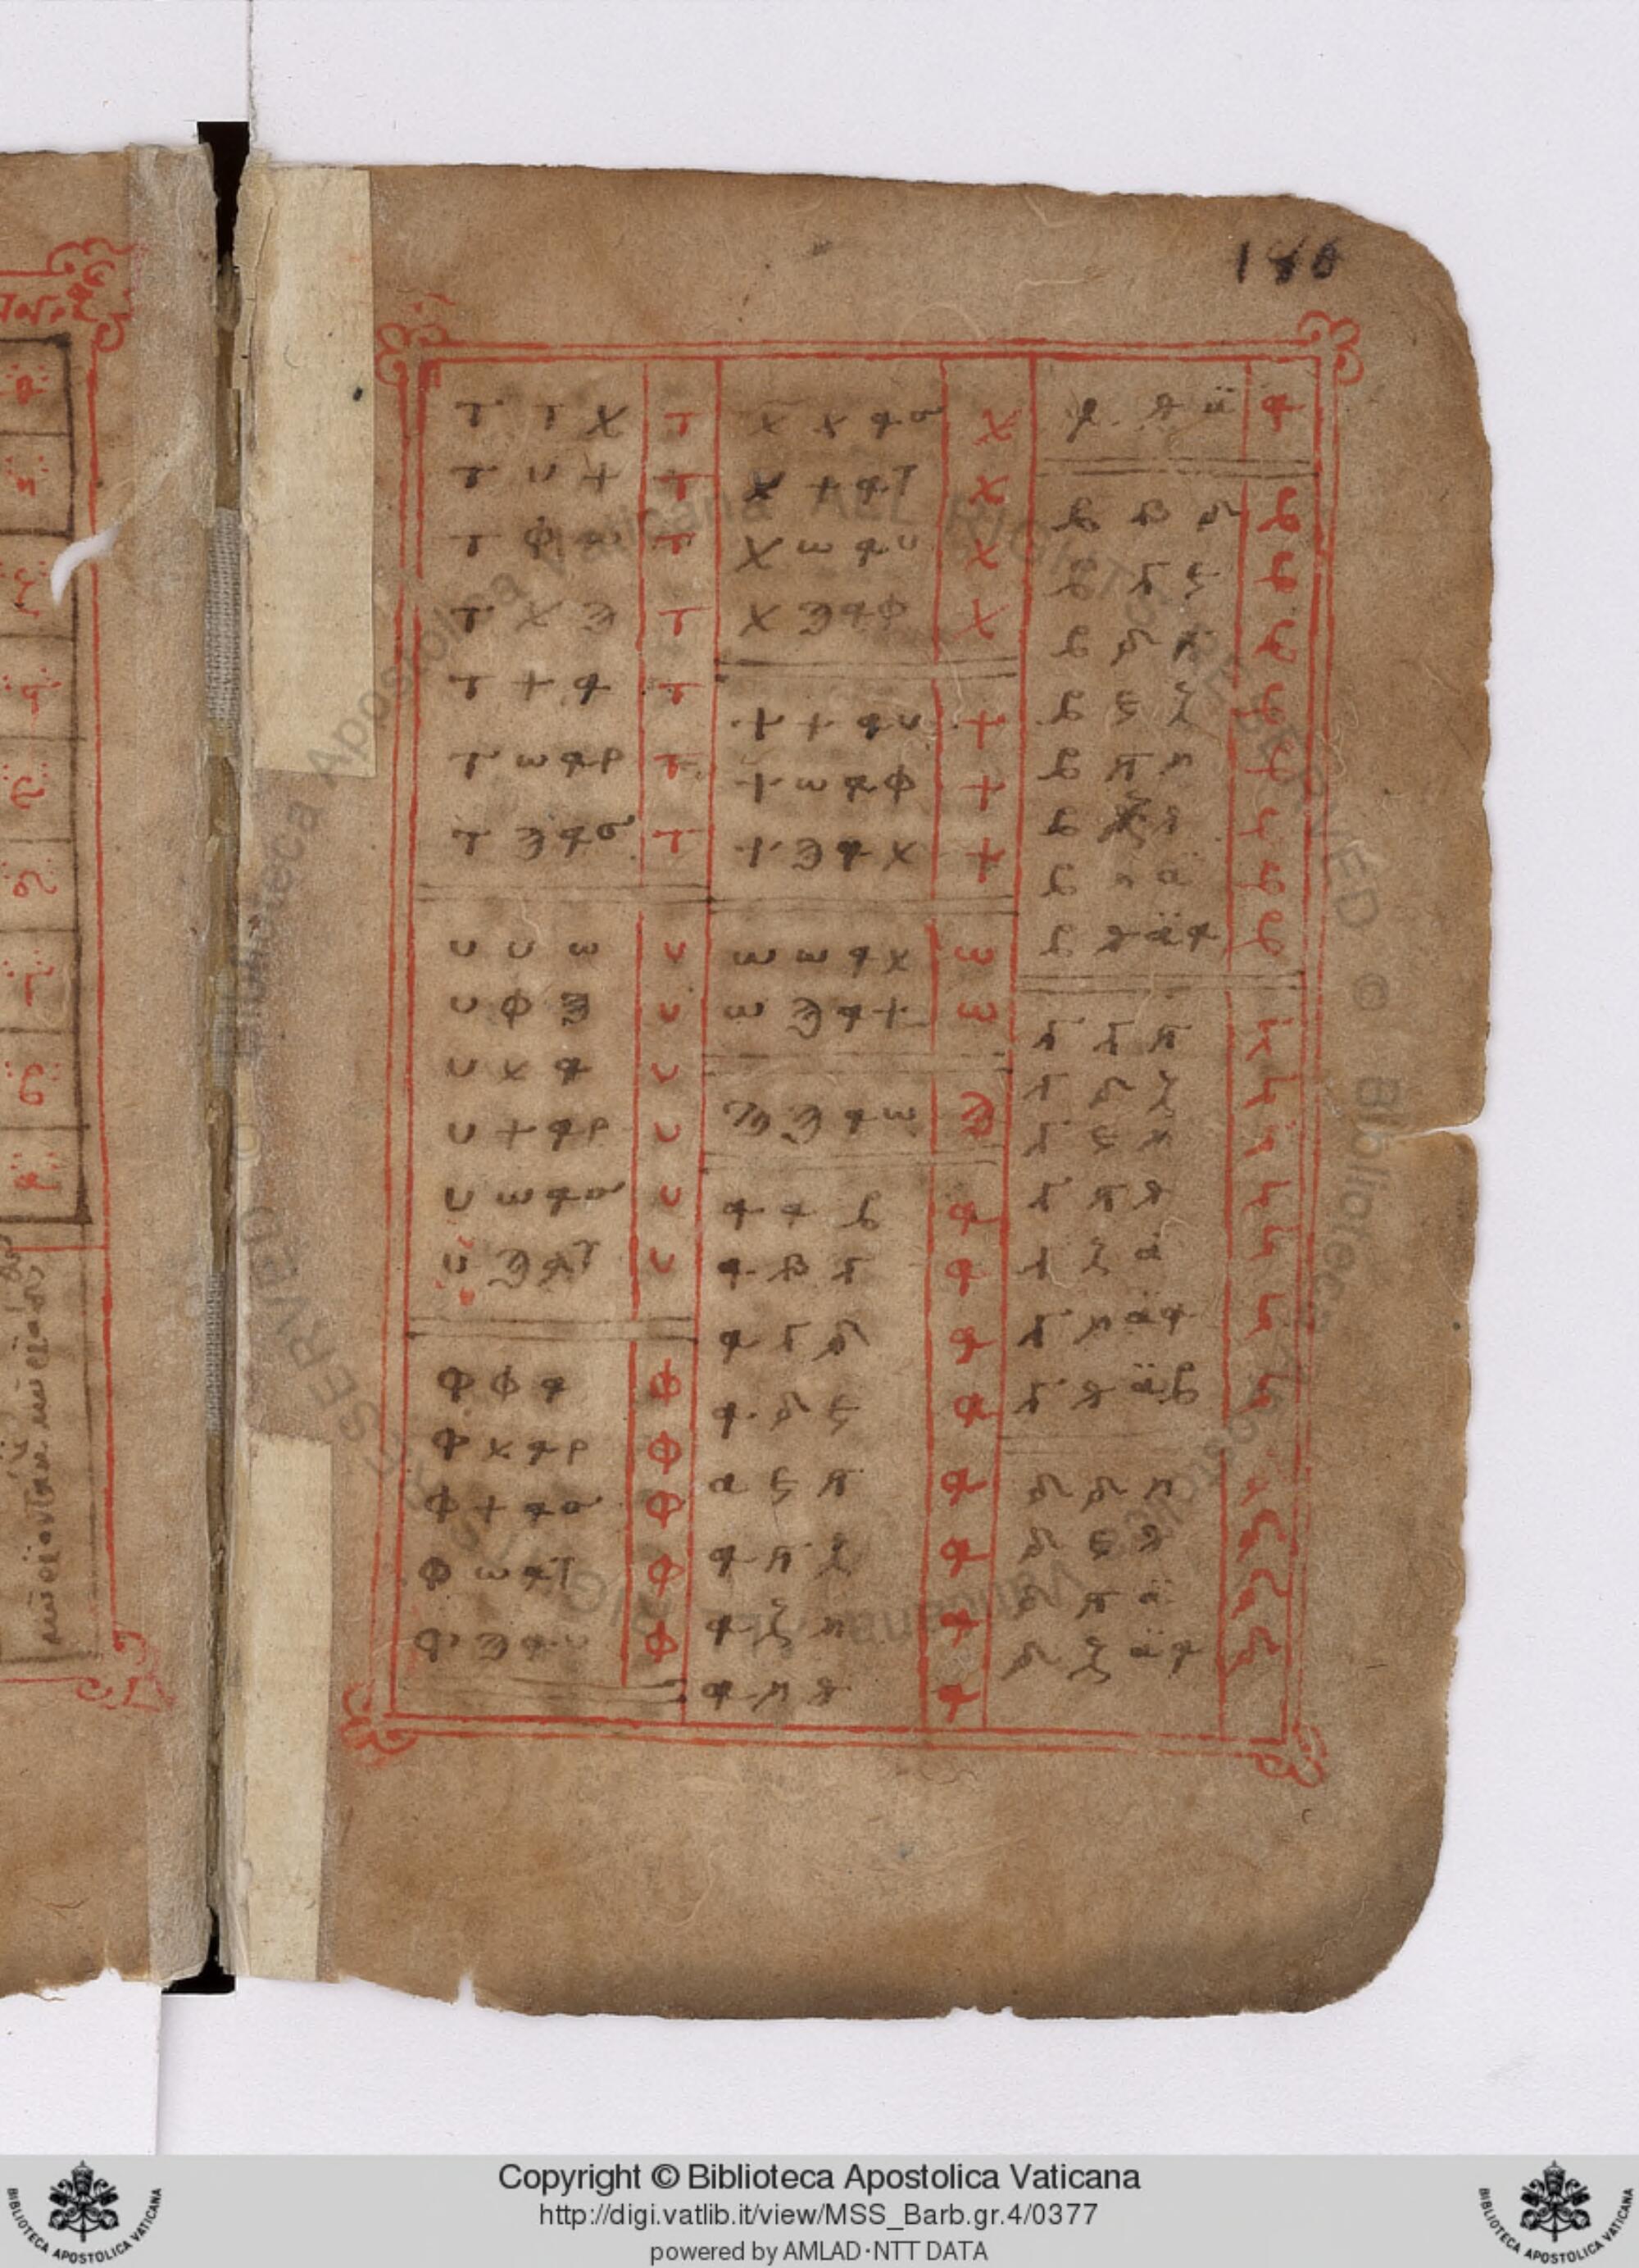 186
τ τ χ τ
τ υ ψ τ
τ φ ω τ
τ χ ϡ τ
τ ψ ͵α τ
τ ω ͵α ρ τ
τ ϡ ͵α σ τ
υ υ ω υ
υ φ ϡ υ
υ χ ͵α υ
υ ψ ͵α ρ υ
υ ω ͵α σ υ
υ ϡ ͵α τ υ
φ φ ͵α φ
φ χ ͵α ρ φ
φ ψ ͵α σ φ
φ ω ͵α τ φ
φ ϡ ͵α υ φ
χ χ ͵α σ χ
χ ψ ͵α τ χ
χ ω ͵α υ χ
χ ϡ ͵α φ χ
ψ ψ ͵α υ ψ
ψ ω ͵α φ ψ
ψ ϡ ͵α χ ψ
ω ω ͵α χ ω
ω ϡ ͵α ψ ω
ϡ ϡ ͵α ω ϡ
͵α ͵α ͵β ͵α
͵α ͵β ͵γ ͵α
͵α ͵γ ͵δ ͵α
͵α ͵δ ͵ε ͵α
͵α ͵ε ͵ϛ ͵α
͵α ͵ϛ ͵ζ ͵α
͵α ͵ζ ͵η ͵α
͵α ͵η ͵θ ͵α
͵α ͵θ α̈ ͵α
͵β ͵β ͵δ ͵β
͵β ͵γ ͵ε ͵β
͵β ͵δ ͵ϛ ͵β
͵β ͵ε ͵ζ ͵β
͵β ͵ϛ ͵η ͵β
͵β ͵ζ ͵θ ͵β
͵β ͵η α̈ ͵β
͵β ͵θ α̈ ͵α ͵β
͵γ ͵γ ͵ϛ ͵γ
͵γ ͵δ ͵ζ ͵γ
͵γ ͵ε ͵η ͵γ
͵γ ͵ϛ ͵θ ͵γ
͵γ ͵ζ α̈ ͵γ
͵γ ͵η α̈ ͵α ͵γ
͵γ ͵θ α̈ ͵β ͵γ
͵δ ͵δ ͵η ͵δ
͵δ ͵ε ͵θ ͵δ
͵δ ͵ϛ α̈ ͵δ
͵δ ͵ζ α̈ ͵α ͵δ
Copyright © Biblioteca Apostolica Vaticana
http://digi.vatlib.it/view/MSS_Barb.gr.4/0377
powered by AMLAD·NTT DATA
BIBLIOTECA APOSTOLICA VATICANA
BIBLIOTECA APOSTOLICA VATICANA